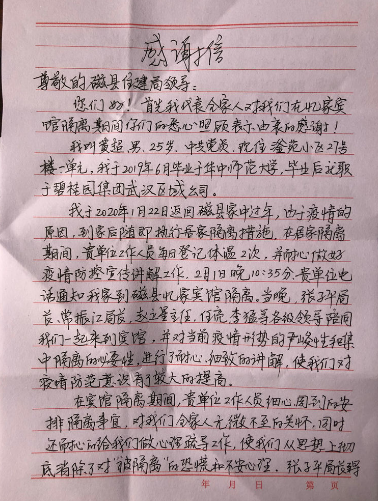 感谢信
尊敬的磁县住建局领导:
您们好!首先我代表全家人对我们在忆家宾
馆隔离期间你们的悉心照顾表示由衷的感谢!
我叫黄超,男,25岁,中共党员,现住滏苑小区27号
楼一单元,我于2019年6月毕业于华中师范大学,毕业后就职
于碧桂园集团武汉区域公司。
我于2020年1月22日返回磁县家中过年,由于疫情的
原因,到家后随即执行居家隔离措施,在居家隔离
期间,贵单位工作人员每日登记体温2次,并耐心做好
疫情防控宣传讲解工作。2月1日晚10:35分贵单位电
话通知我家到磁县忆家宾馆隔离。当晚,张子平局
长、常振江局长、赵立军主任、任亮、李猛等各级领导陪同
我们一起来到宾馆,并对当前疫情形势的严峻性和集
中隔离的必要性,进行了耐心、细致的讲解,使我们对
疫情防范意识有了较大的提高。
在宾馆隔离期间,贵单位工作人员细心、周到的安
排隔离事宜,对我们全家人无微不至的关怀,同时
还耐心的给我们做心理疏导工作,使我们从思想上彻
底消除了对"被隔离"的恐慌和不安心理,张子平局长得
年 月 日 第 页